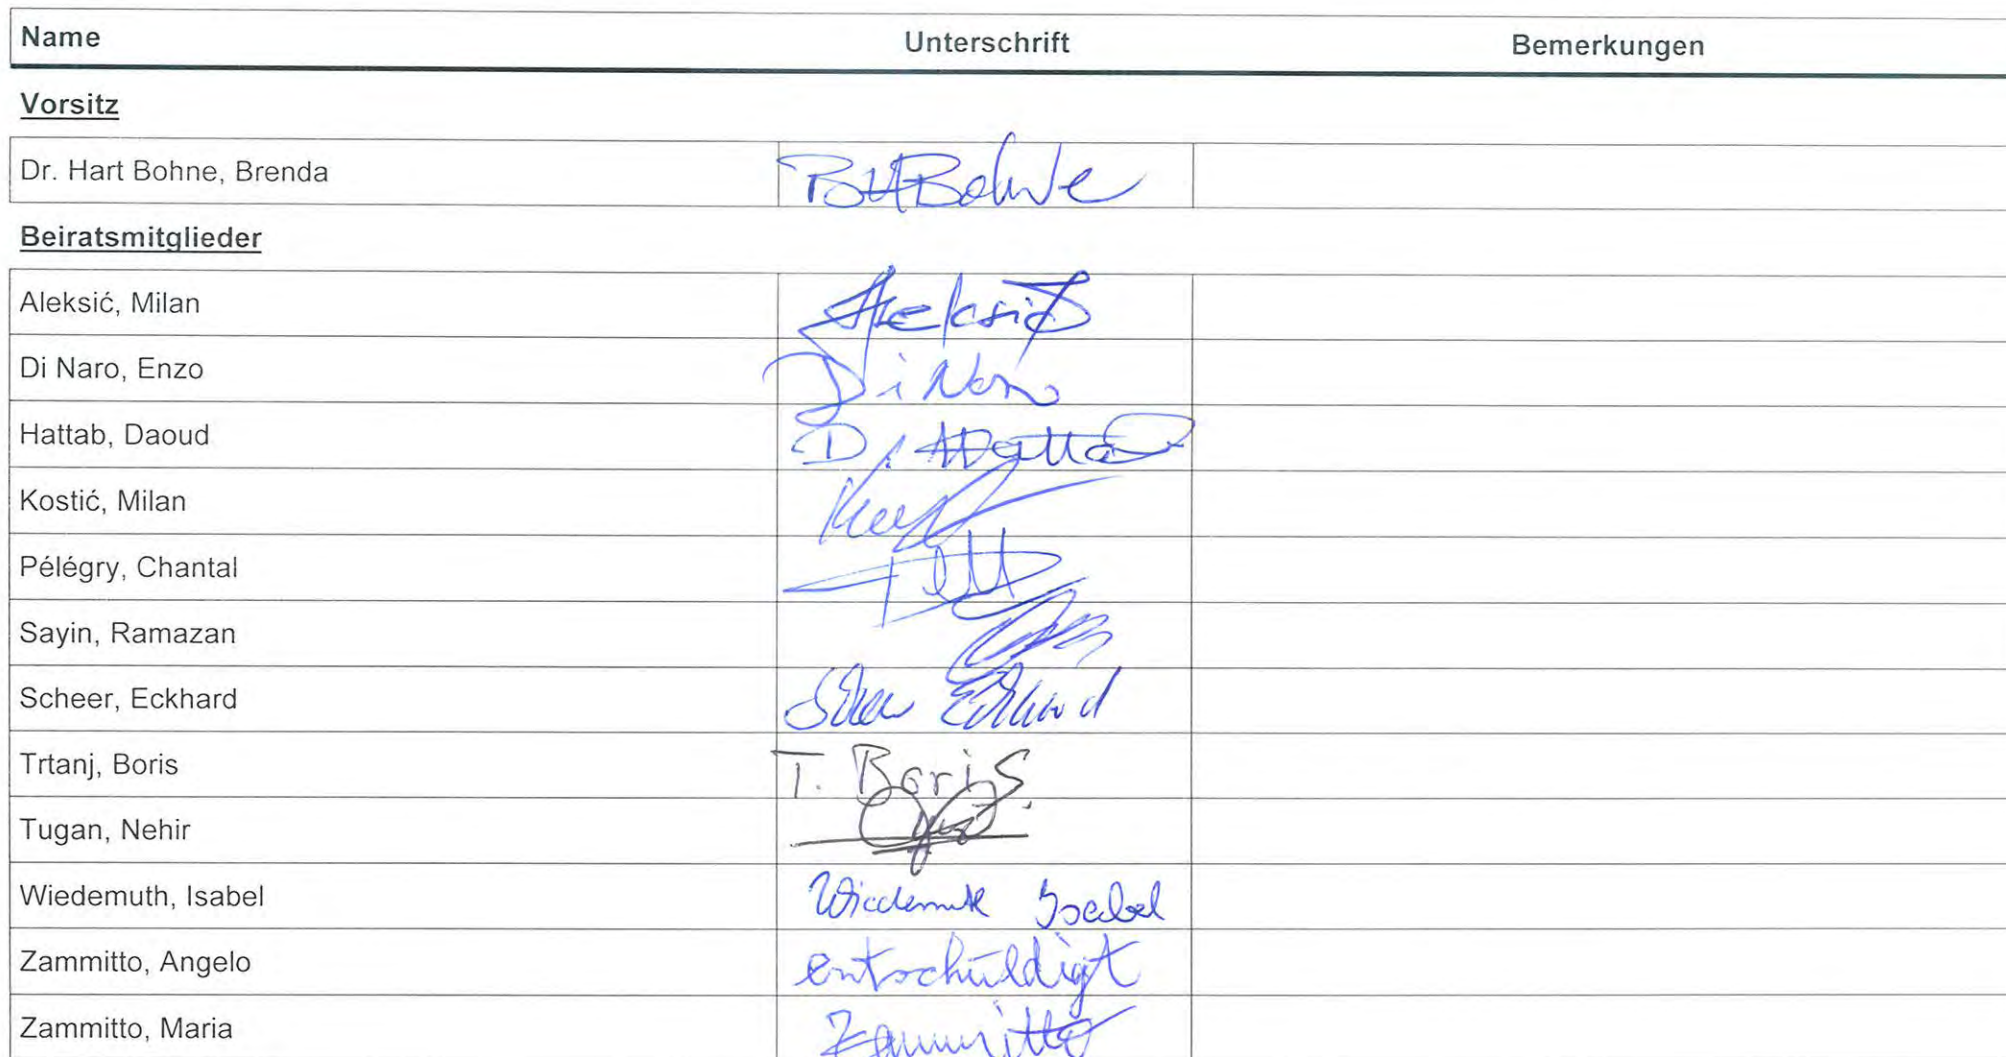 Name Unterschrift Bemerkungen
Vorsitz
Dr. Hart Bohne, Brenda BHBohne
Beiratsmitglieder
Aleksić, Milan Aleksić
Di Naro, Enzo Di Naro
Hattab, Daoud D. Hattab
Kostić, Milan
Pélégry, Chantal
Sayin, Ramazan
Scheer, Eckhard Scheer Eckhard
Trtanj, Boris T. Boris
Tugan, Nehir
Wiedemuth, Isabel Wiedemuth Isabel
Zammitto, Angelo entschuldigt
Zammitto, Maria Zammitto